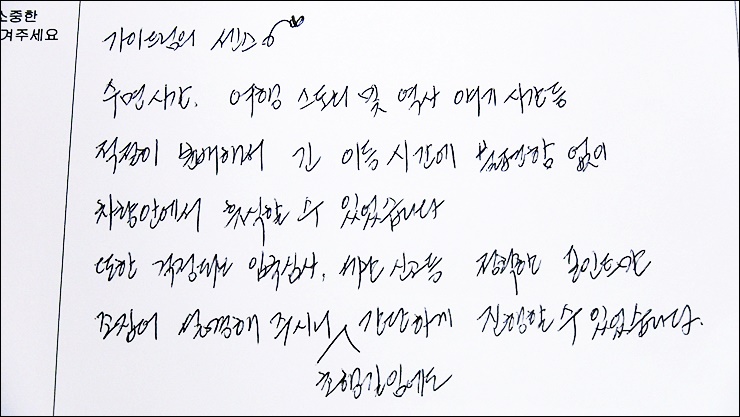 소중한
겨주세요
가이드님의 센스
수면시간, 여행 스토리 및 역사 얘기 시간등
적절이 분배해서 긴 이동 시간에 불편함 없이
차량안에서 휴식할 수 있었습니다
또한 걱정되는 입국심사, 세관 신고등 정확한 포인트만
꼬집어 설명해 주시니 간단하게 진행할 수 있었습니다.
초행길임에도